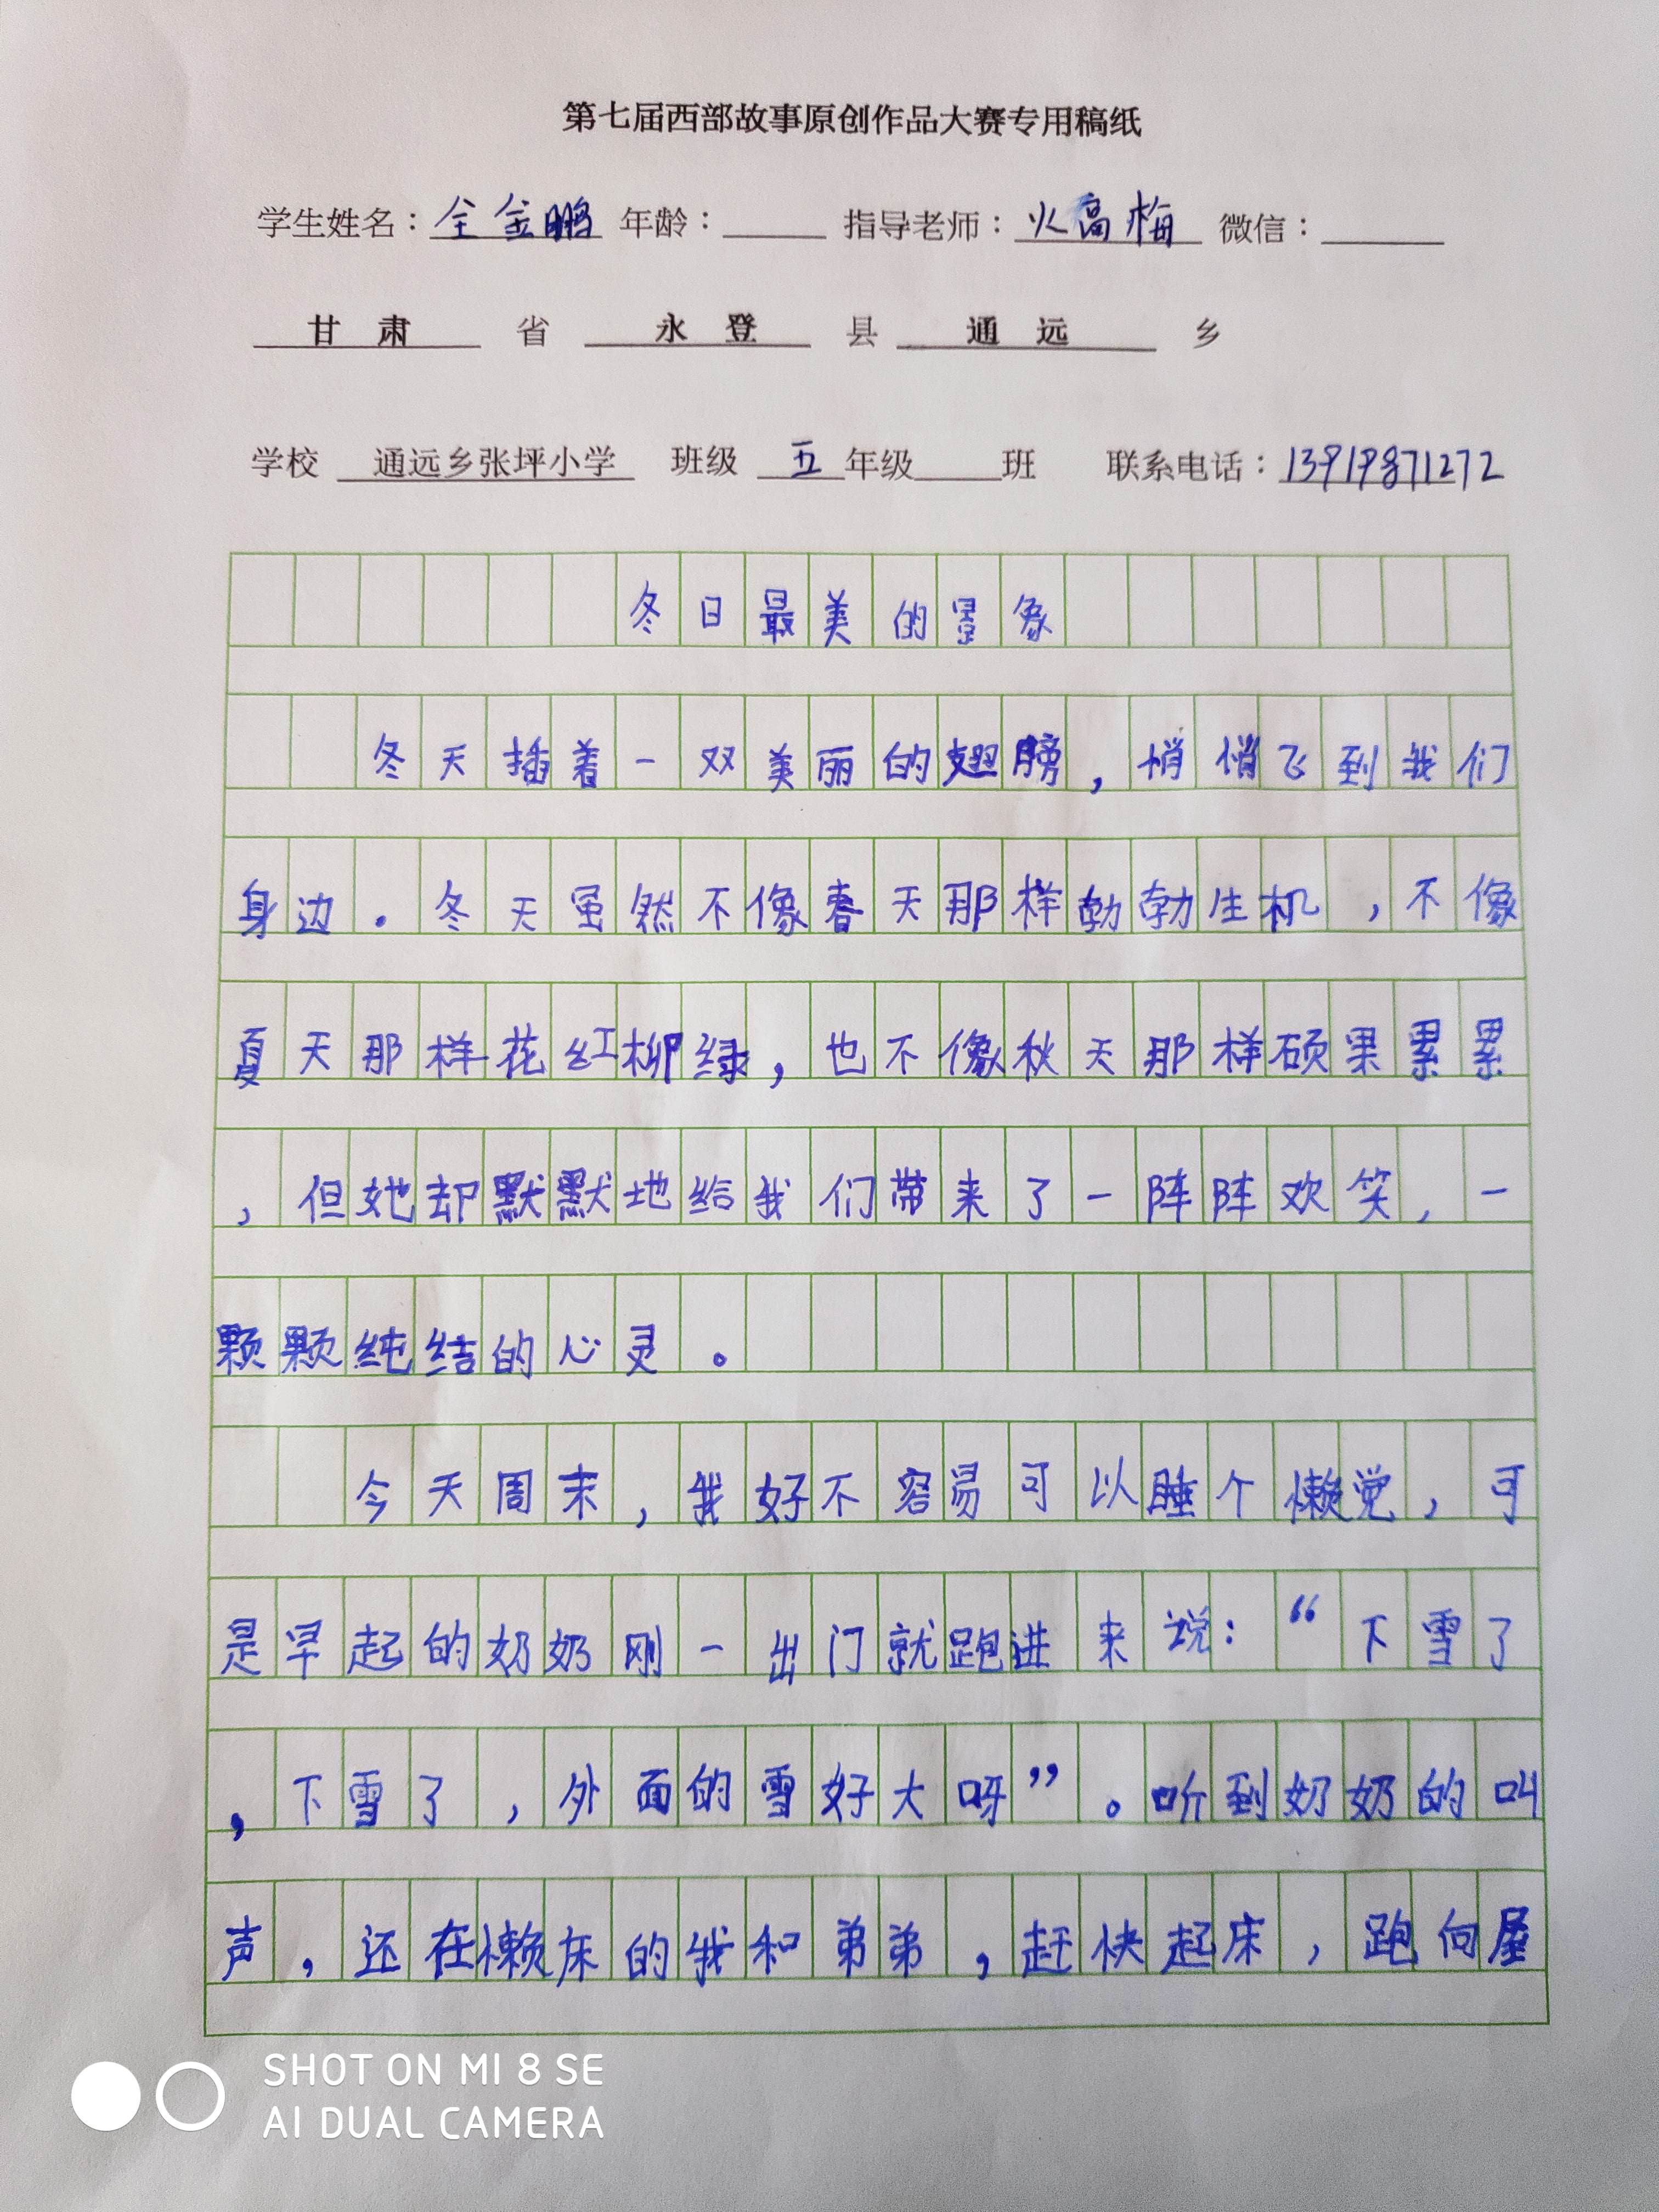 第七届西部故事原创作品大赛专用稿纸
学生姓名：全金鹏 年龄： 指导老师：火高梅 微信：
甘肃 省 永登 县 通远 乡
学校 通远乡张坪小学 班级 五年级 班 联系电话：13919871272
冬日最美的景像
冬天插着一双美丽的翅膀，悄悄飞到我们
身边。冬天虽然不像春天那样勃勃生机，不像
夏天那样花红柳绿，也不像秋天那样硕果累累
，但她却默默地给我们带来了一阵阵欢笑，一
颗颗纯结的心灵。
今天周末，我好不容易可以睡个懒觉，可
是早起的奶奶刚一出门就跑进来说：“下雪了
，下雪了，外面的雪好大呀”。听到奶奶的叫
声，还在懒床的我和弟弟，赶快起床，跑向屋
SHOT ON MI 8 SE
AI DUAL CAMERA